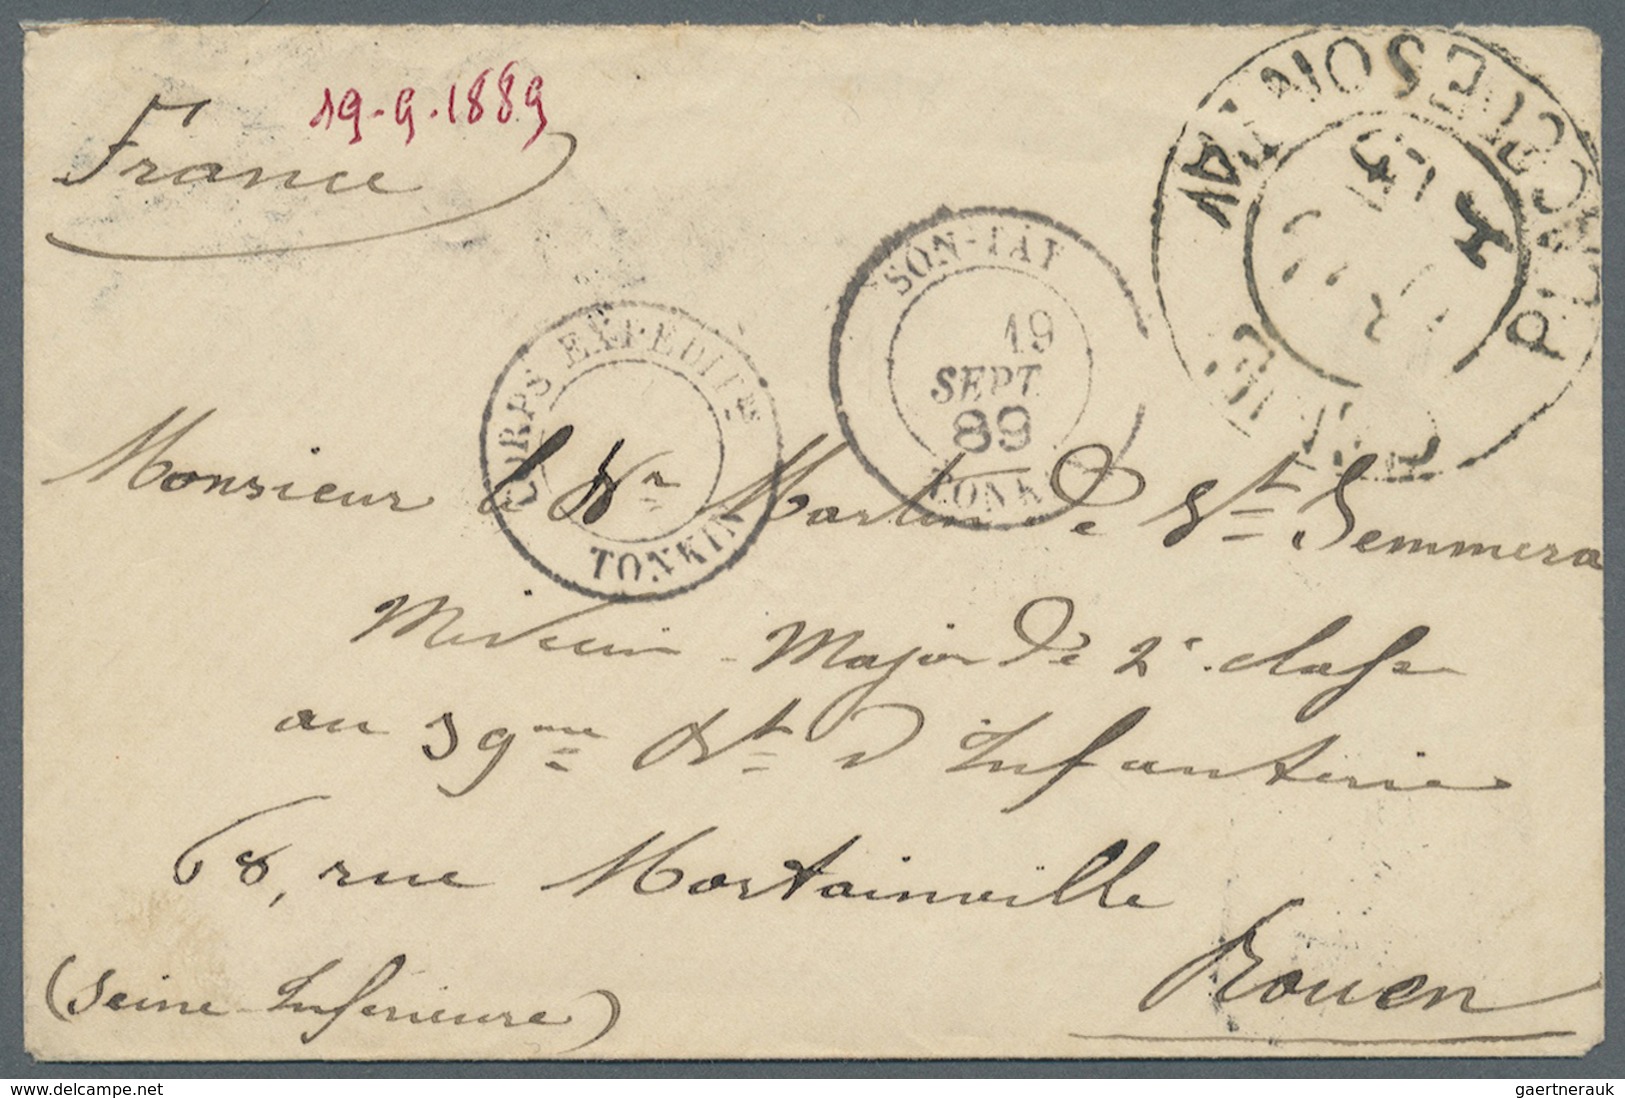 19-9-1889
France
PLACE DE SON TAY
SON-TAY
19
SEPT
89
TONKIN
CORPS EXPEDIT^re
TONKIN
Monsieur le Dr Martin de St Semmera
Médecin-Major de 2e classe
au 39me Rt d'Infanterie
68, rue Martainville
Rouen
(Seine-Inférieure)
www.delcampe.net
gaertnerauk